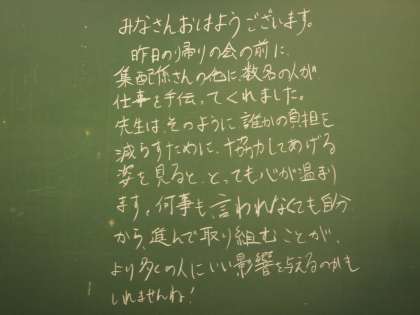 みなさんおはようございます。
昨日の帰りの会の前に、
集配係さんの他に、数名の人が
仕事を手伝ってくれました。
先生は、そのように誰かの負担を
減らすために、協力してあげる
姿を見ると、とっても心が温まり
ます。何事も、言われなくても自分
から、進んで取り組むことが、
より多くの人にいい影響を与えるのかも
しれませんね!